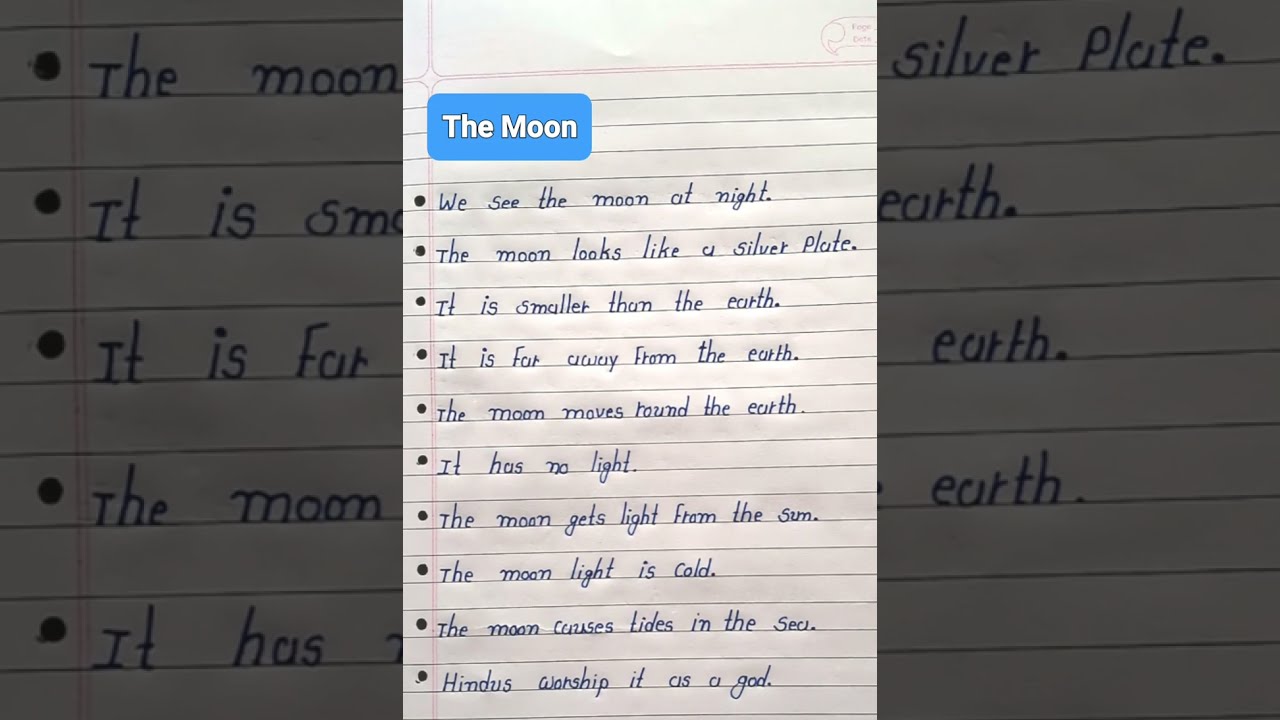 Page
Date
The Moon
We see the moon at night.
The moon looks like a silver Plate.
It is smaller than the earth.
It is Far away From the earth.
The moon moves round the earth.
It has no light.
The moon gets light From the sun.
The moon light is Cold.
The moon causes tides in the sea.
Hindus worship it as a god.
The moon
silver Plate.
It is sma
earth.
It is Far
earth.
The moon
earth.
It has